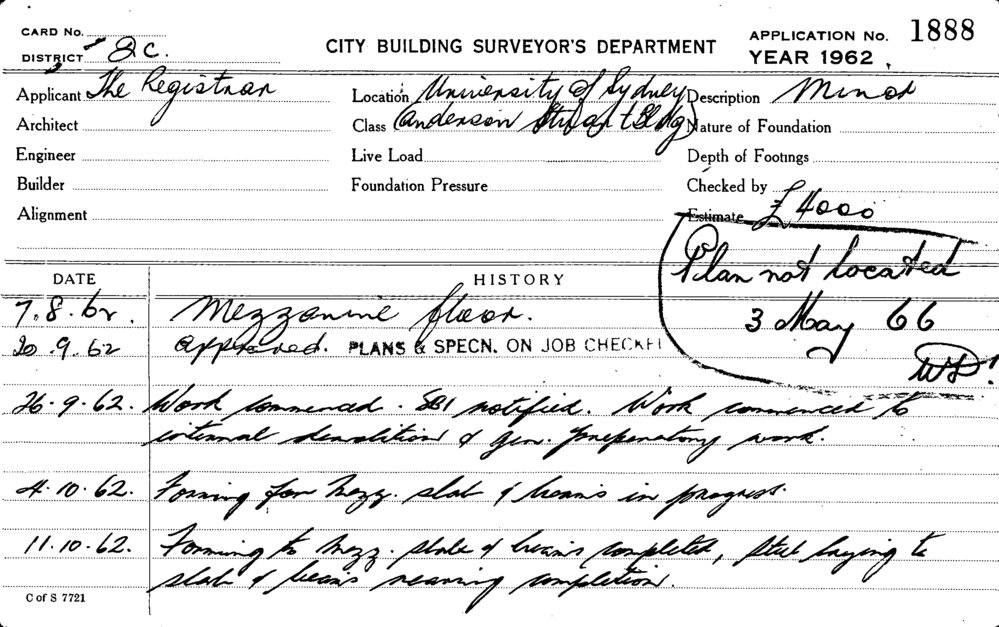 CARD No.
DISTRICT & C.
CITY BUILDING SURVEYOR'S DEPARTMENT
APPLICATION No. 1888
YEAR 1962
Applicant The Registrar
Location University of Sydney
Description Minor
Architect
Class (Anderson Stuart Bldg)
Nature of Foundation
Engineer
Live Load
Depth of Footings
Builder
Foundation Pressure
Checked by
Alignment
Estimate £4000
Plan not located
3 May 66
DATE
HISTORY
7.8.62. Mezzanine floor.
20.9.62 approved. PLANS & SPECN. ON JOB CHECKE
26.9.62. Work commenced. notified. Work commenced to
internal demolition & gen. preparatory work.
4.10.62. Forming for Mezz. slab & beams in progress.
11.10.62. Forming to Mezz. slab & beams completed, steel laying to
slab & beams nearing completion.
C of S 7721